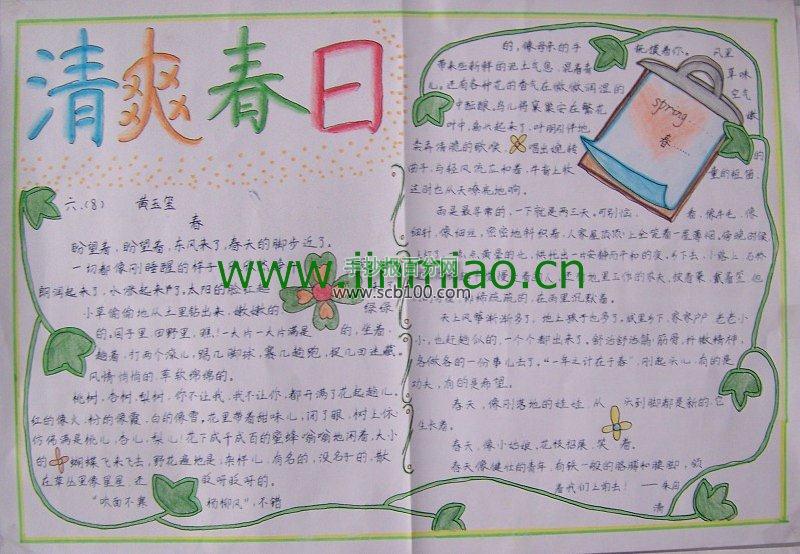 清爽春日
六.(8) 黄玉玺
春
盼望着,盼望着,东风来了,春天的脚步近了。
一切都像刚睡醒的样子
朗润起来了,水涨起来了。太阳的脸
小草偷偷地从土里钻出来,嫩嫩的 绿绿
的。园子里,田野里,瞧!一大片一大片满是 的,坐着,
趟着,打两个滚儿,踢几脚球,赛几趟跑,捉几回迷藏。
风悄悄的,草软绵绵的。
桃树,杏树,梨树,你不让我,我不让你,都开满了花赶趟儿。
红的像火,粉的像霞,白的像雪。花里带着甜味儿,闭了眼,树上仿
仿佛满是桃儿,杏儿,梨儿。花下成千成百的蜜蜂嗡嗡地闹着,大小
的 蝴蝶飞来飞去,野花遍地是:杂样儿,有名的,没名子的,散
在草丛里像星星,还 眨呀眨的。
"吹面不寒 杨柳风",不错
的,像母亲的手 抚摸着你。 风里
带来些新鲜的泥土气息,混着青 草味
儿。还有各种花的香气在微微润湿的 空气
中酝酿。鸟儿将窠巢安在繁花
叶中,高兴起来了,呼朋引伴地
卖弄清脆的歌喉, 唱出婉转 的
曲子,与轻风流水和着,牛背上牧 童的短笛,
这时也从天嘹亮地响。
雨是最寻常的,一下就是两三天。可别恼, 看,像牛毛,像
细针,像细丝,密密地斜织着,人家屋顶顶上全笼着一层薄烟。傍晚时候
上灯了, 点黄晕的光,烘托出一片安静而平和的夜。乡下去,小路上,石桥
地里工作的农夫,披着蓑,戴着笠,但
稀疏疏的,在雨里沉默着。
天上风筝渐渐多了,地上孩子也多了。城里乡下,家家户户,老老小
小,也赶趟似的,一个个都出来了。舒活舒活筋骨,抖擞精神,
各做各的一份事儿去了。"一年之计在于春",刚起头儿,有的是
功夫,有的是希望。
春天,像刚落地的娃娃,从 头到脚都是新的,它
生长着。
春天,像小姑娘,花枝招展,笑 着。
春天像健壮的青年,有铁一般的胳膊和腰脚,领
着我们上前去! ——朱自
清
spring
春
www.jinmiao.cn
手抄报百分网
www.scb100.com